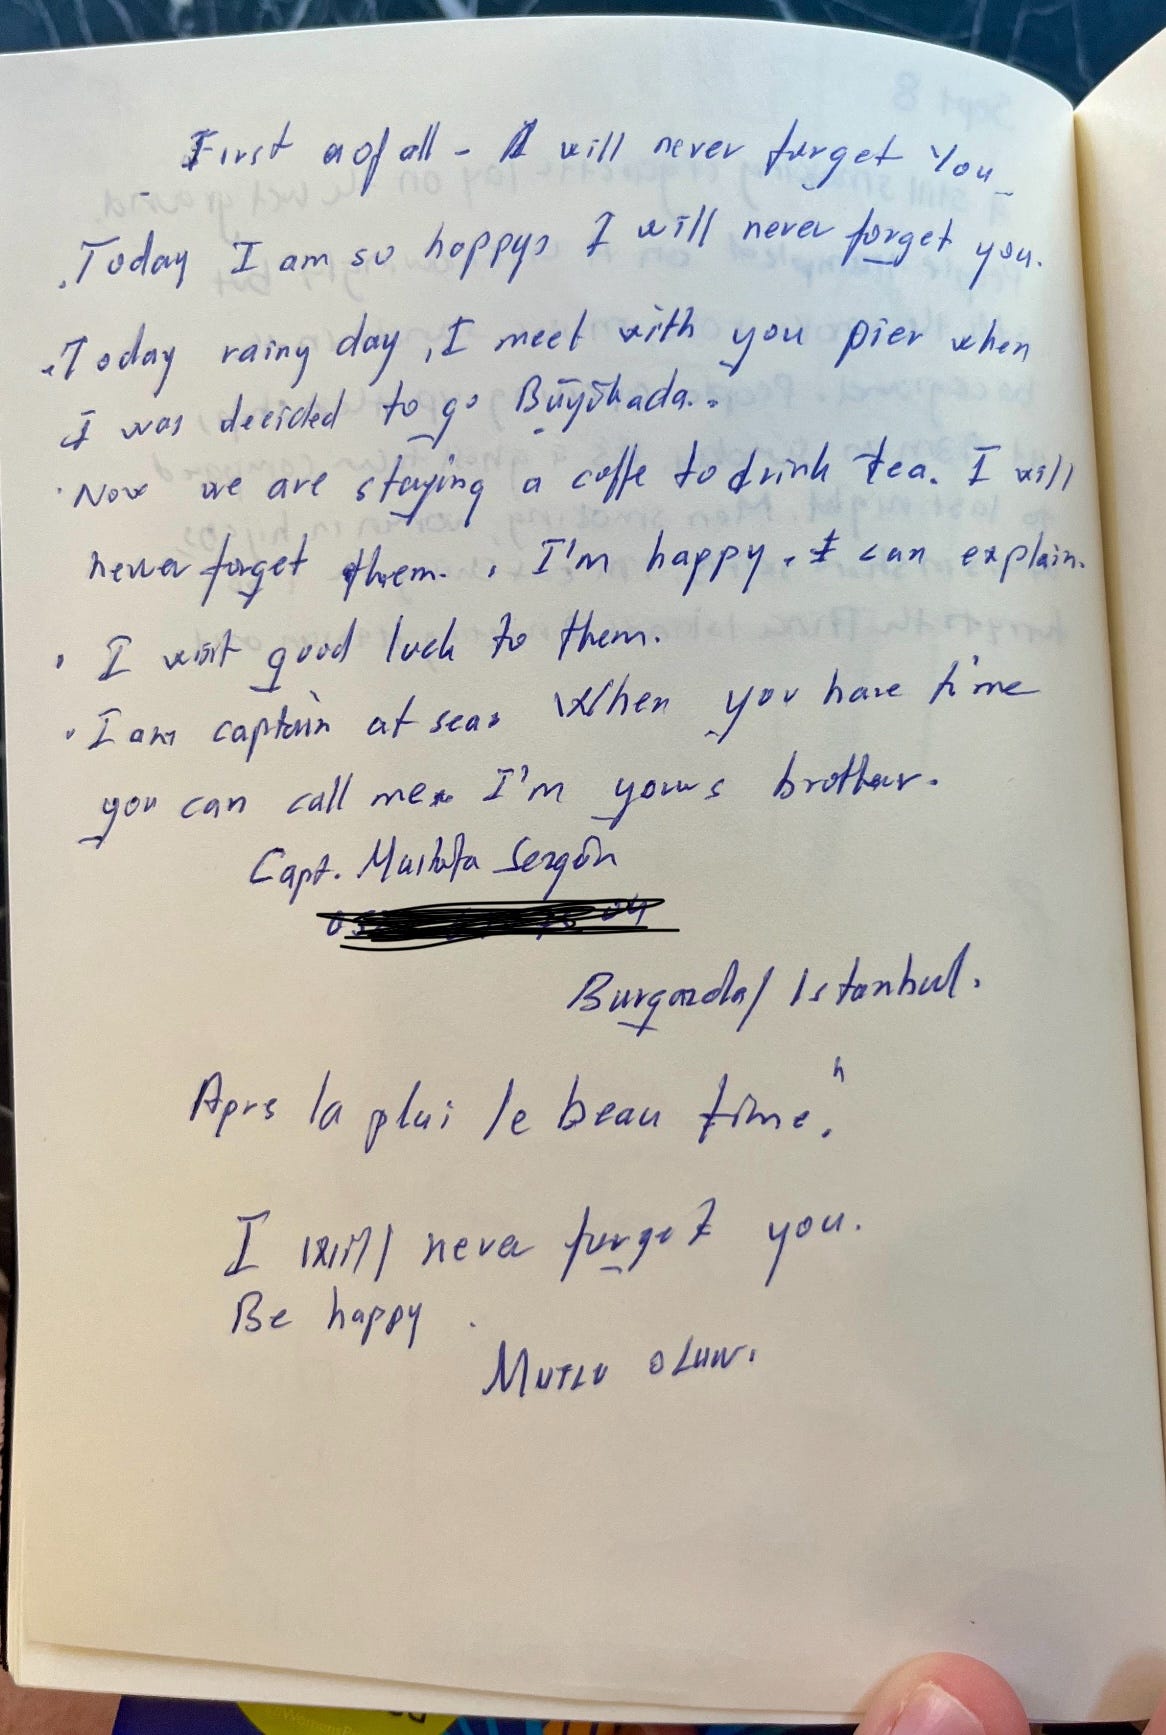 First a of all - I will never forget You
Today I am so happy, I will never forget you.
Today rainy day, I meet with you pier when
I was decided to go Büyükada.
Now we are staying a coffe to drink tea. I will
never forget them.. I'm happy. I can explain.
I good luck to them.
I am captain at sea. When you have time
you can call me. I'm yours brother.
Capt. Mustafa Sezgün
04
Burgazda/Istanbul.
Aprs la plui le beau time."
I will never forget you.
Be happy.
MUTLU OLUN.